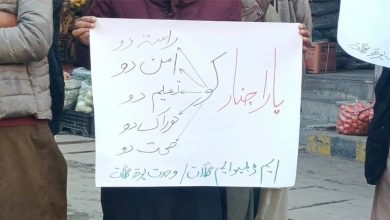 پاراچنار کو
راستہ دو
امن دو
تعلیم دو
خوراک دو
صحت دو
ایم ڈبلیو ایم گلگت / وحدت یوتھ گلگت